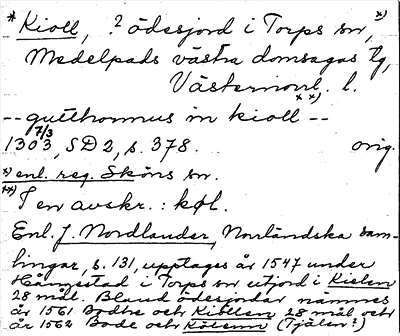 * Kioll, ? ödesjord i Torps sn, x)
Medelpads västra domsagas tg,
Västernorrl. l.
-- gutthormus in kioll xx) --
1303 7/3, SD 2, s. 378. orig.
x) enl. reg. Sköns sn.
xx) I en avskr.: køl.
Enl. J. Nordlander, Norrländska sam-
lingar, s. 131, upptages år 1547 under
Hångstad i Torps sn utjord i Kielen
28 mål. Bland ödesjordar nämnes
år 1561 Bodhe och Kiöllen 28 mål och
år 1562 Bode och Kölenn (Tjälen?)